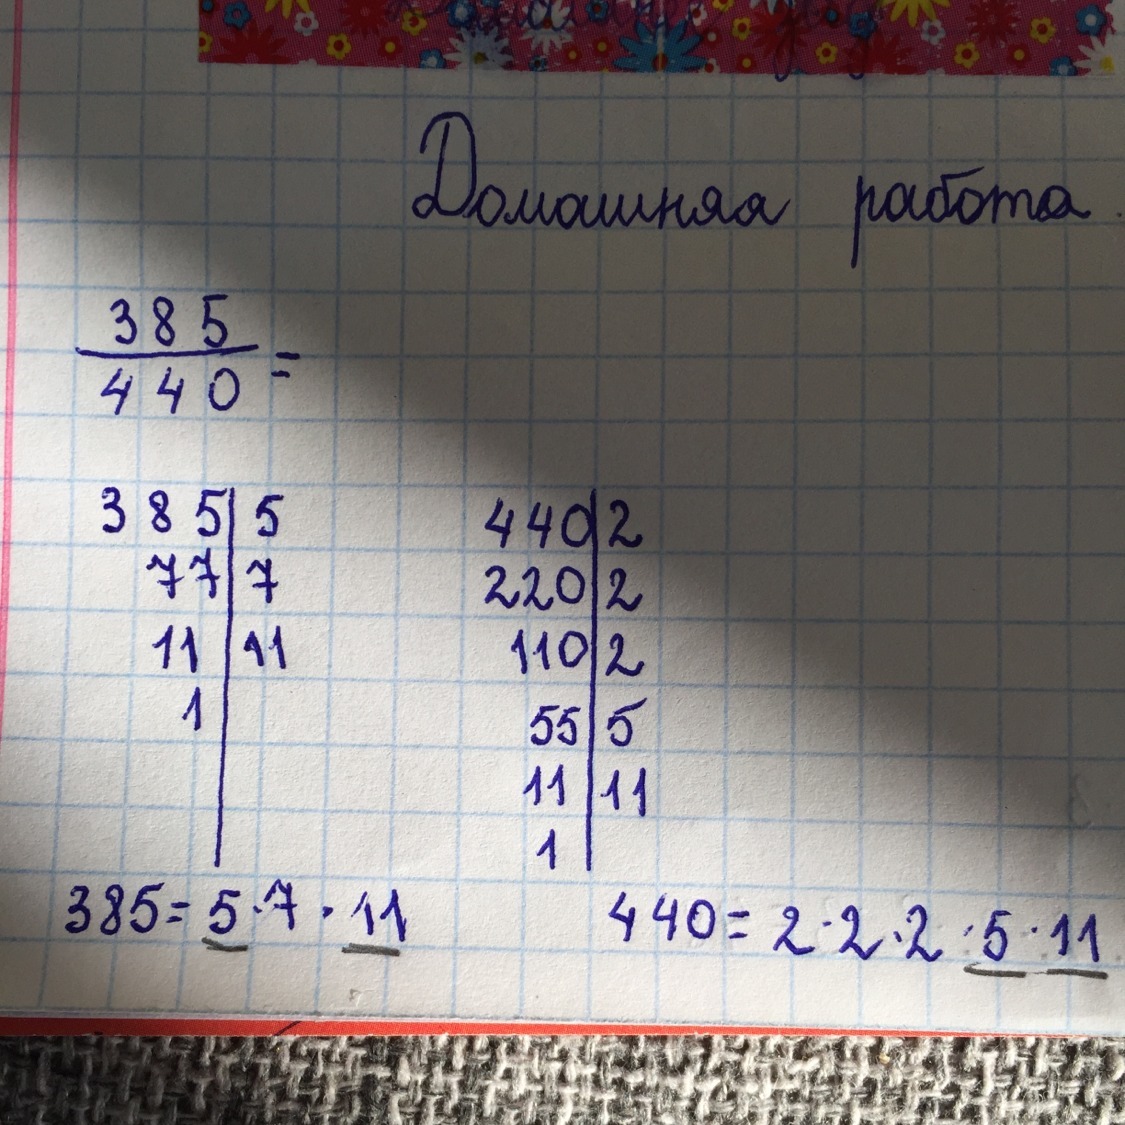 Домашняя работа
385
440 =
385 | 5
77 | 7
11 | 11
1 |
440 | 2
220 | 2
110 | 2
55 | 5
11 | 11
1 |
385 = 5 · 7 · 11
440 = 2 · 2 · 2 · 5 · 11